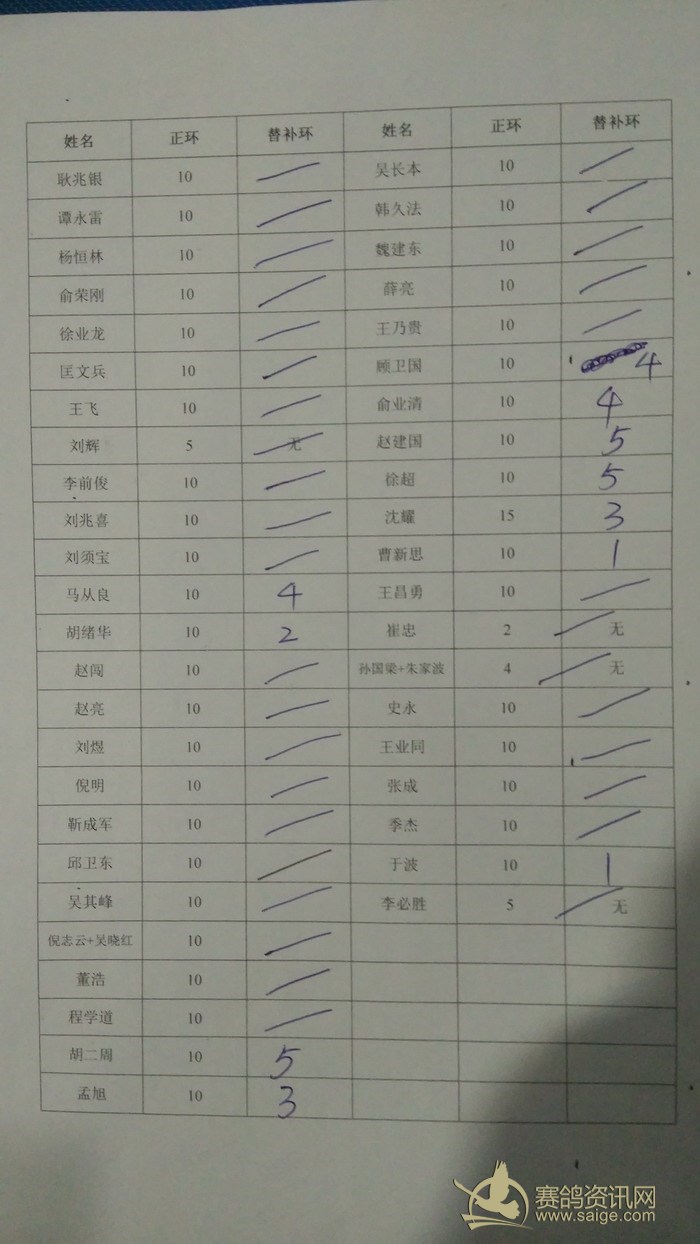 姓名 正环 替补环 姓名 正环 替补环
耿兆银 10 吴长本 10
谭永雷 10 韩久法 10
杨恒林 10 魏建东 10
俞荣刚 10 薛亮 10
徐业龙 10 王乃贵 10
匡文兵 10 顾卫国 10 4
王飞 10 俞业清 10 4
刘辉 5 无 赵建国 10 5
李前俊 10 徐超 10 5
刘兆喜 10 沈耀 15 3
刘须宝 10 曹新思 10 1
马从良 10 4 王昌勇 10
胡绪华 10 2 崔忠 2 无
赵闯 10 孙国梁+朱家波 4 无
赵亮 10 史永 10
刘煜 10 王业同 10
倪明 10 张成 10
靳成军 10 季杰 10
邱卫东 10 于波 10 1
吴其峰 10 李必胜 5 无
倪志云+吴晓红 10
董浩 10
程学道 10
胡二周 10 5
孟旭 10 3
赛鸽资讯网
www.saige.com